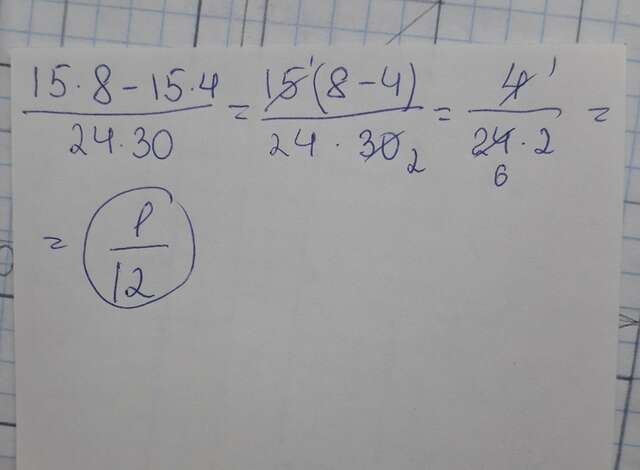 15·8-15·4 / 24·30 = 15¹(8-4) / 24·30₂ = 4¹ / 24₆·2 =
= 1/12